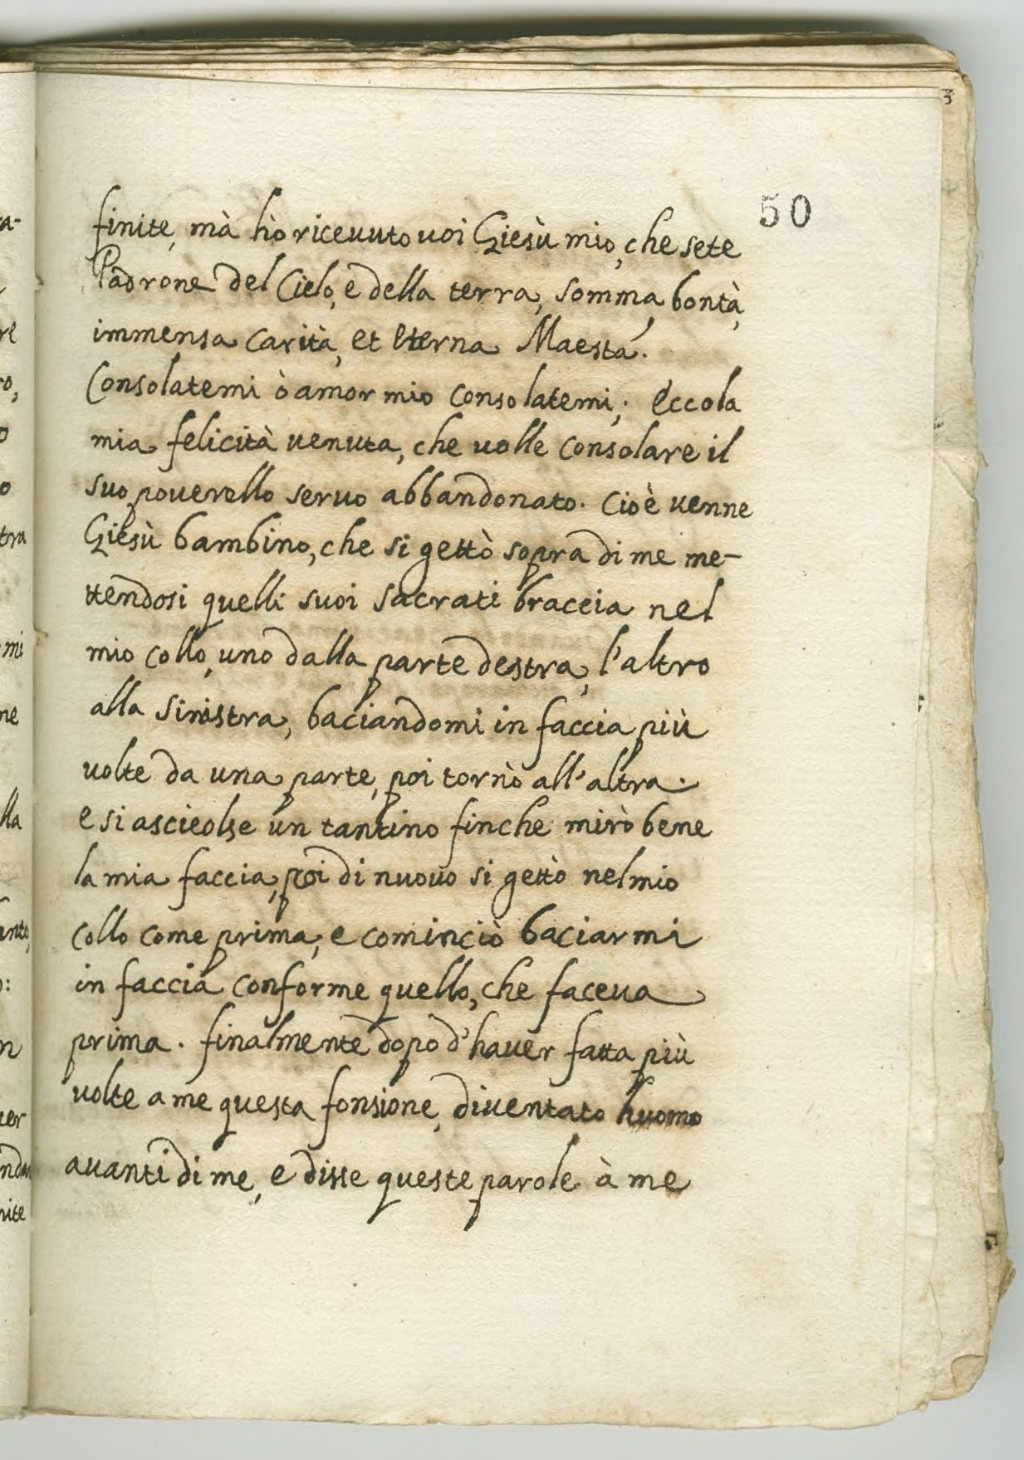 50
finite, mà hò riceuuto uoi Giesù mio, che sete
Padrone del Cielo, e della terra, somma bontà,
immensa carità, et eterna Maestà.
Consolatemi ò amor mio consolatemi; Eccola
mia felicità uenuta, che uolle consolare il
suo pouerello seruo abbandonato. Cioè uenne
Giesù bambino, che si gettò sopra di me me-
ttendosi quelli suoi sacrati braccia nel
mio collo, uno dalla parte destra, l'altro
alla sinistra, baciandomi in faccia più
uolte da una parte, poi tornò all'altra.
e si ascieolse un tantino finche mirò bene
la mia faccia, poi di nuouo si gettò nel mio
collo come prima, e cominciò baciarmi
in faccia conforme quello, che faceua
prima. finalmente dopo d'hauer fatta più
uolte a me questa fonsione, diuentato huomo
auanti di me, e disse queste parole à me